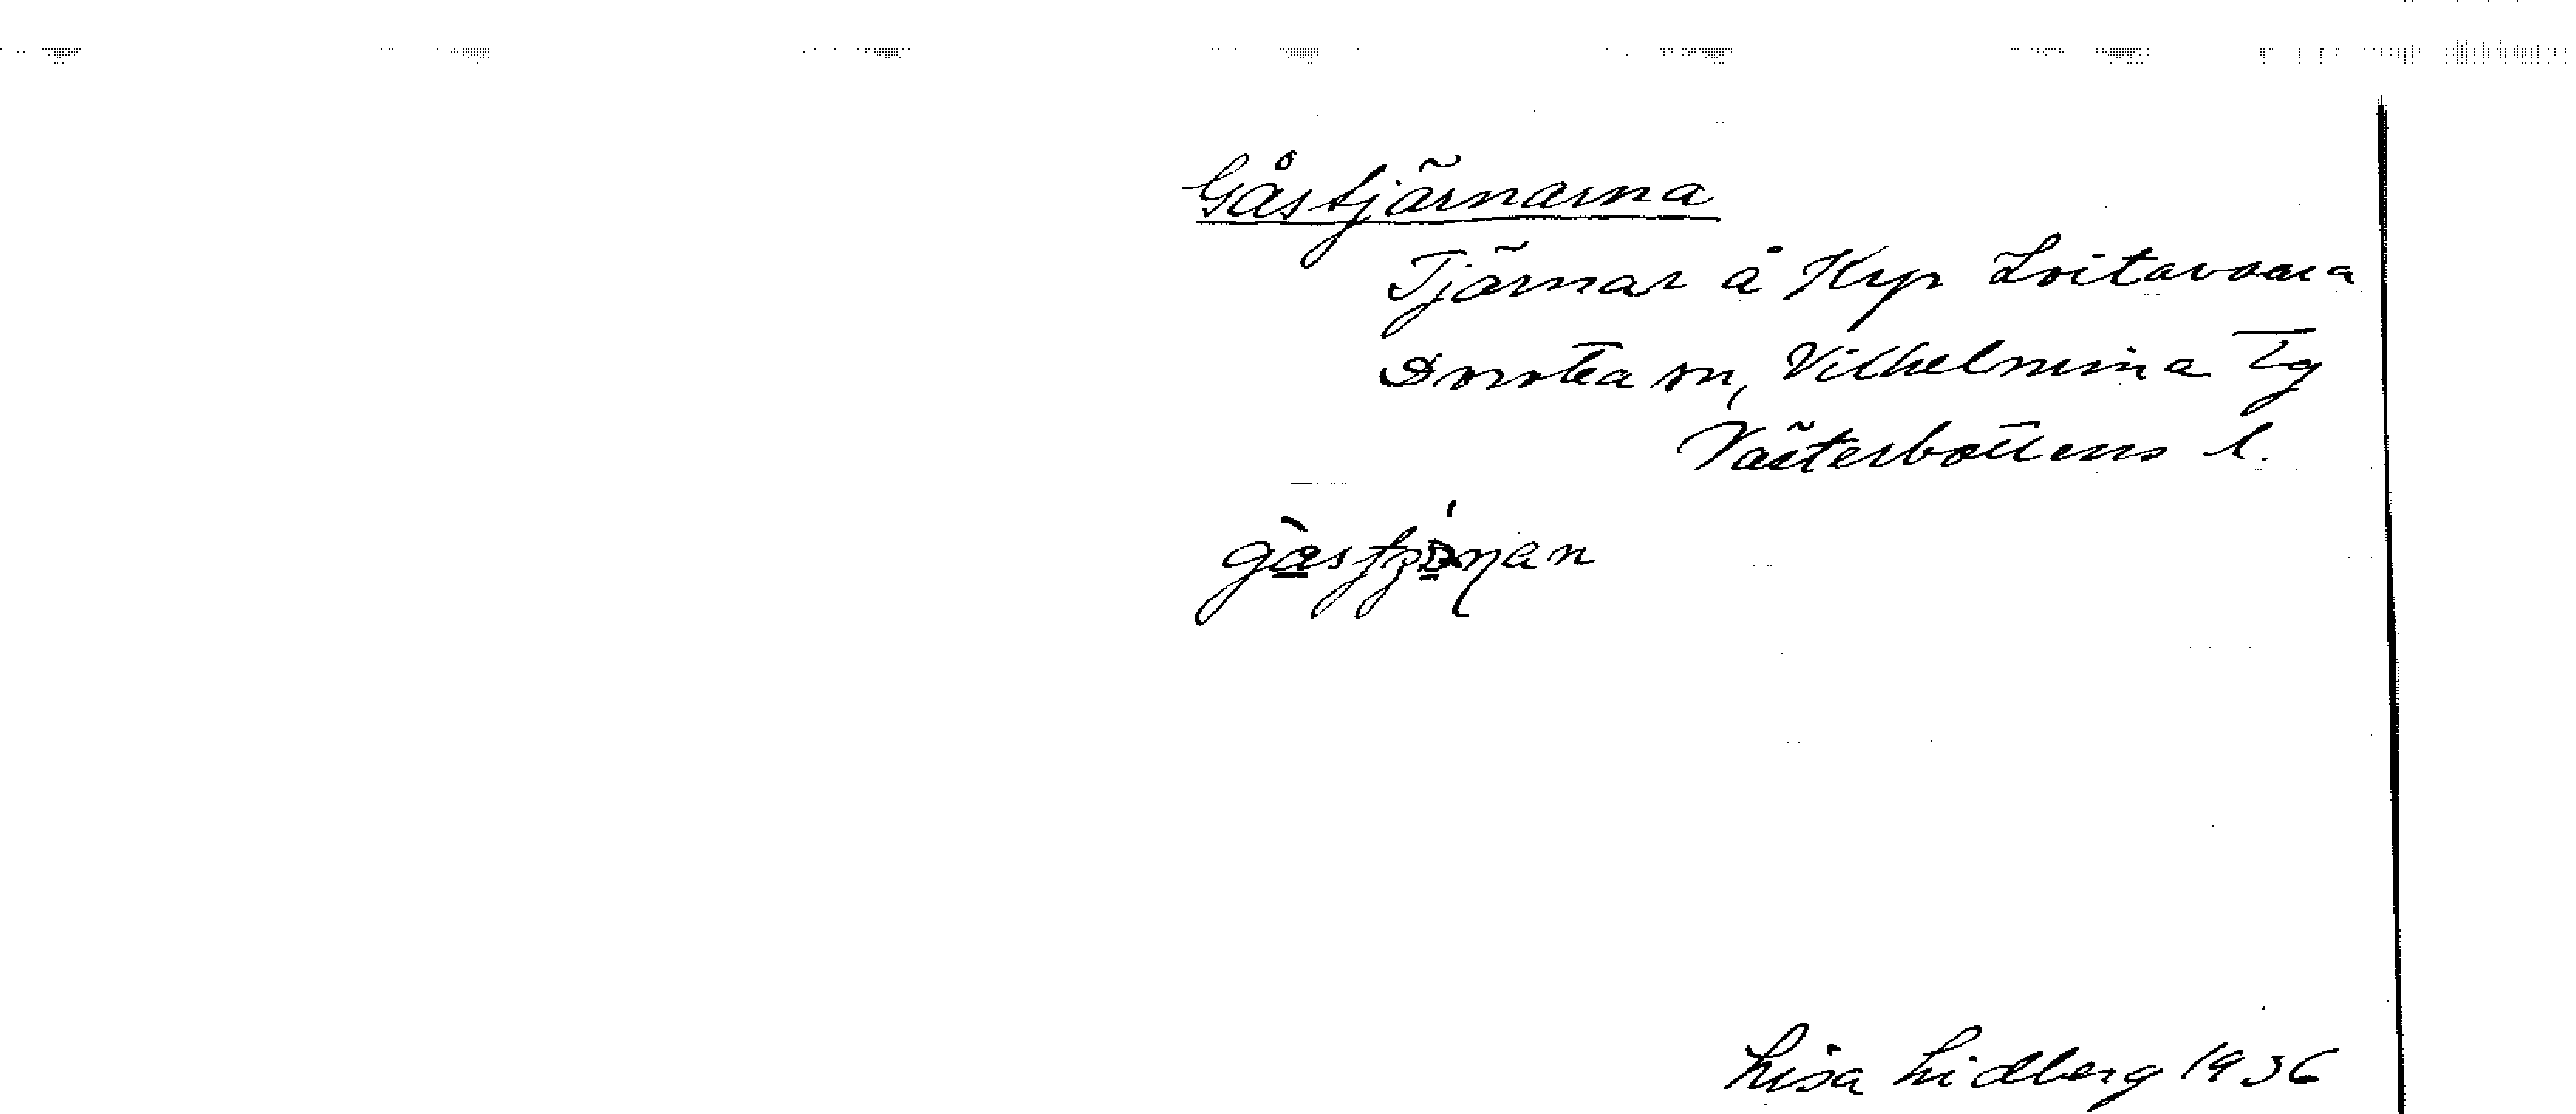 Gåstjärnarna
Tjärnar å Krp Loitavaara
Dorotea sn, Vilhelmina Tg
Västerbottens l.
Lisa Lidberg 1936